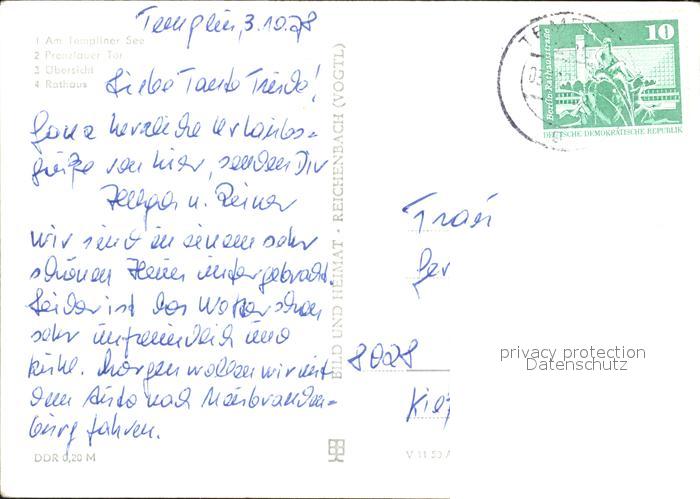 Templin, 3.10.78
1 Am Templiner See
2 Prenzlauer Tor
3 Übersicht
4 Rathaus
Liebe Tante Trude!
Ganz herzliche Urlaubs-
grüße von hier, senden Dir
Helga u. Reiner
wir sind in einem sehr
schönen Heim untergebracht.
Leider ist das Wetter schon
sehr unfreundlich und
kühl. Morgen wollen wir mit
dem Auto nach Neubranden-
burg fahren.
DDR 0,20 M
BILD UND HEIMAT · REICHENBACH (VOGTL)
V 11 50 A
TEMP
10
Berlin, Rathausstraße
DEUTSCHE DEMOKRATISCHE REPUBLIK
Frau
Ger
8028
privacy protection
Datenschutz